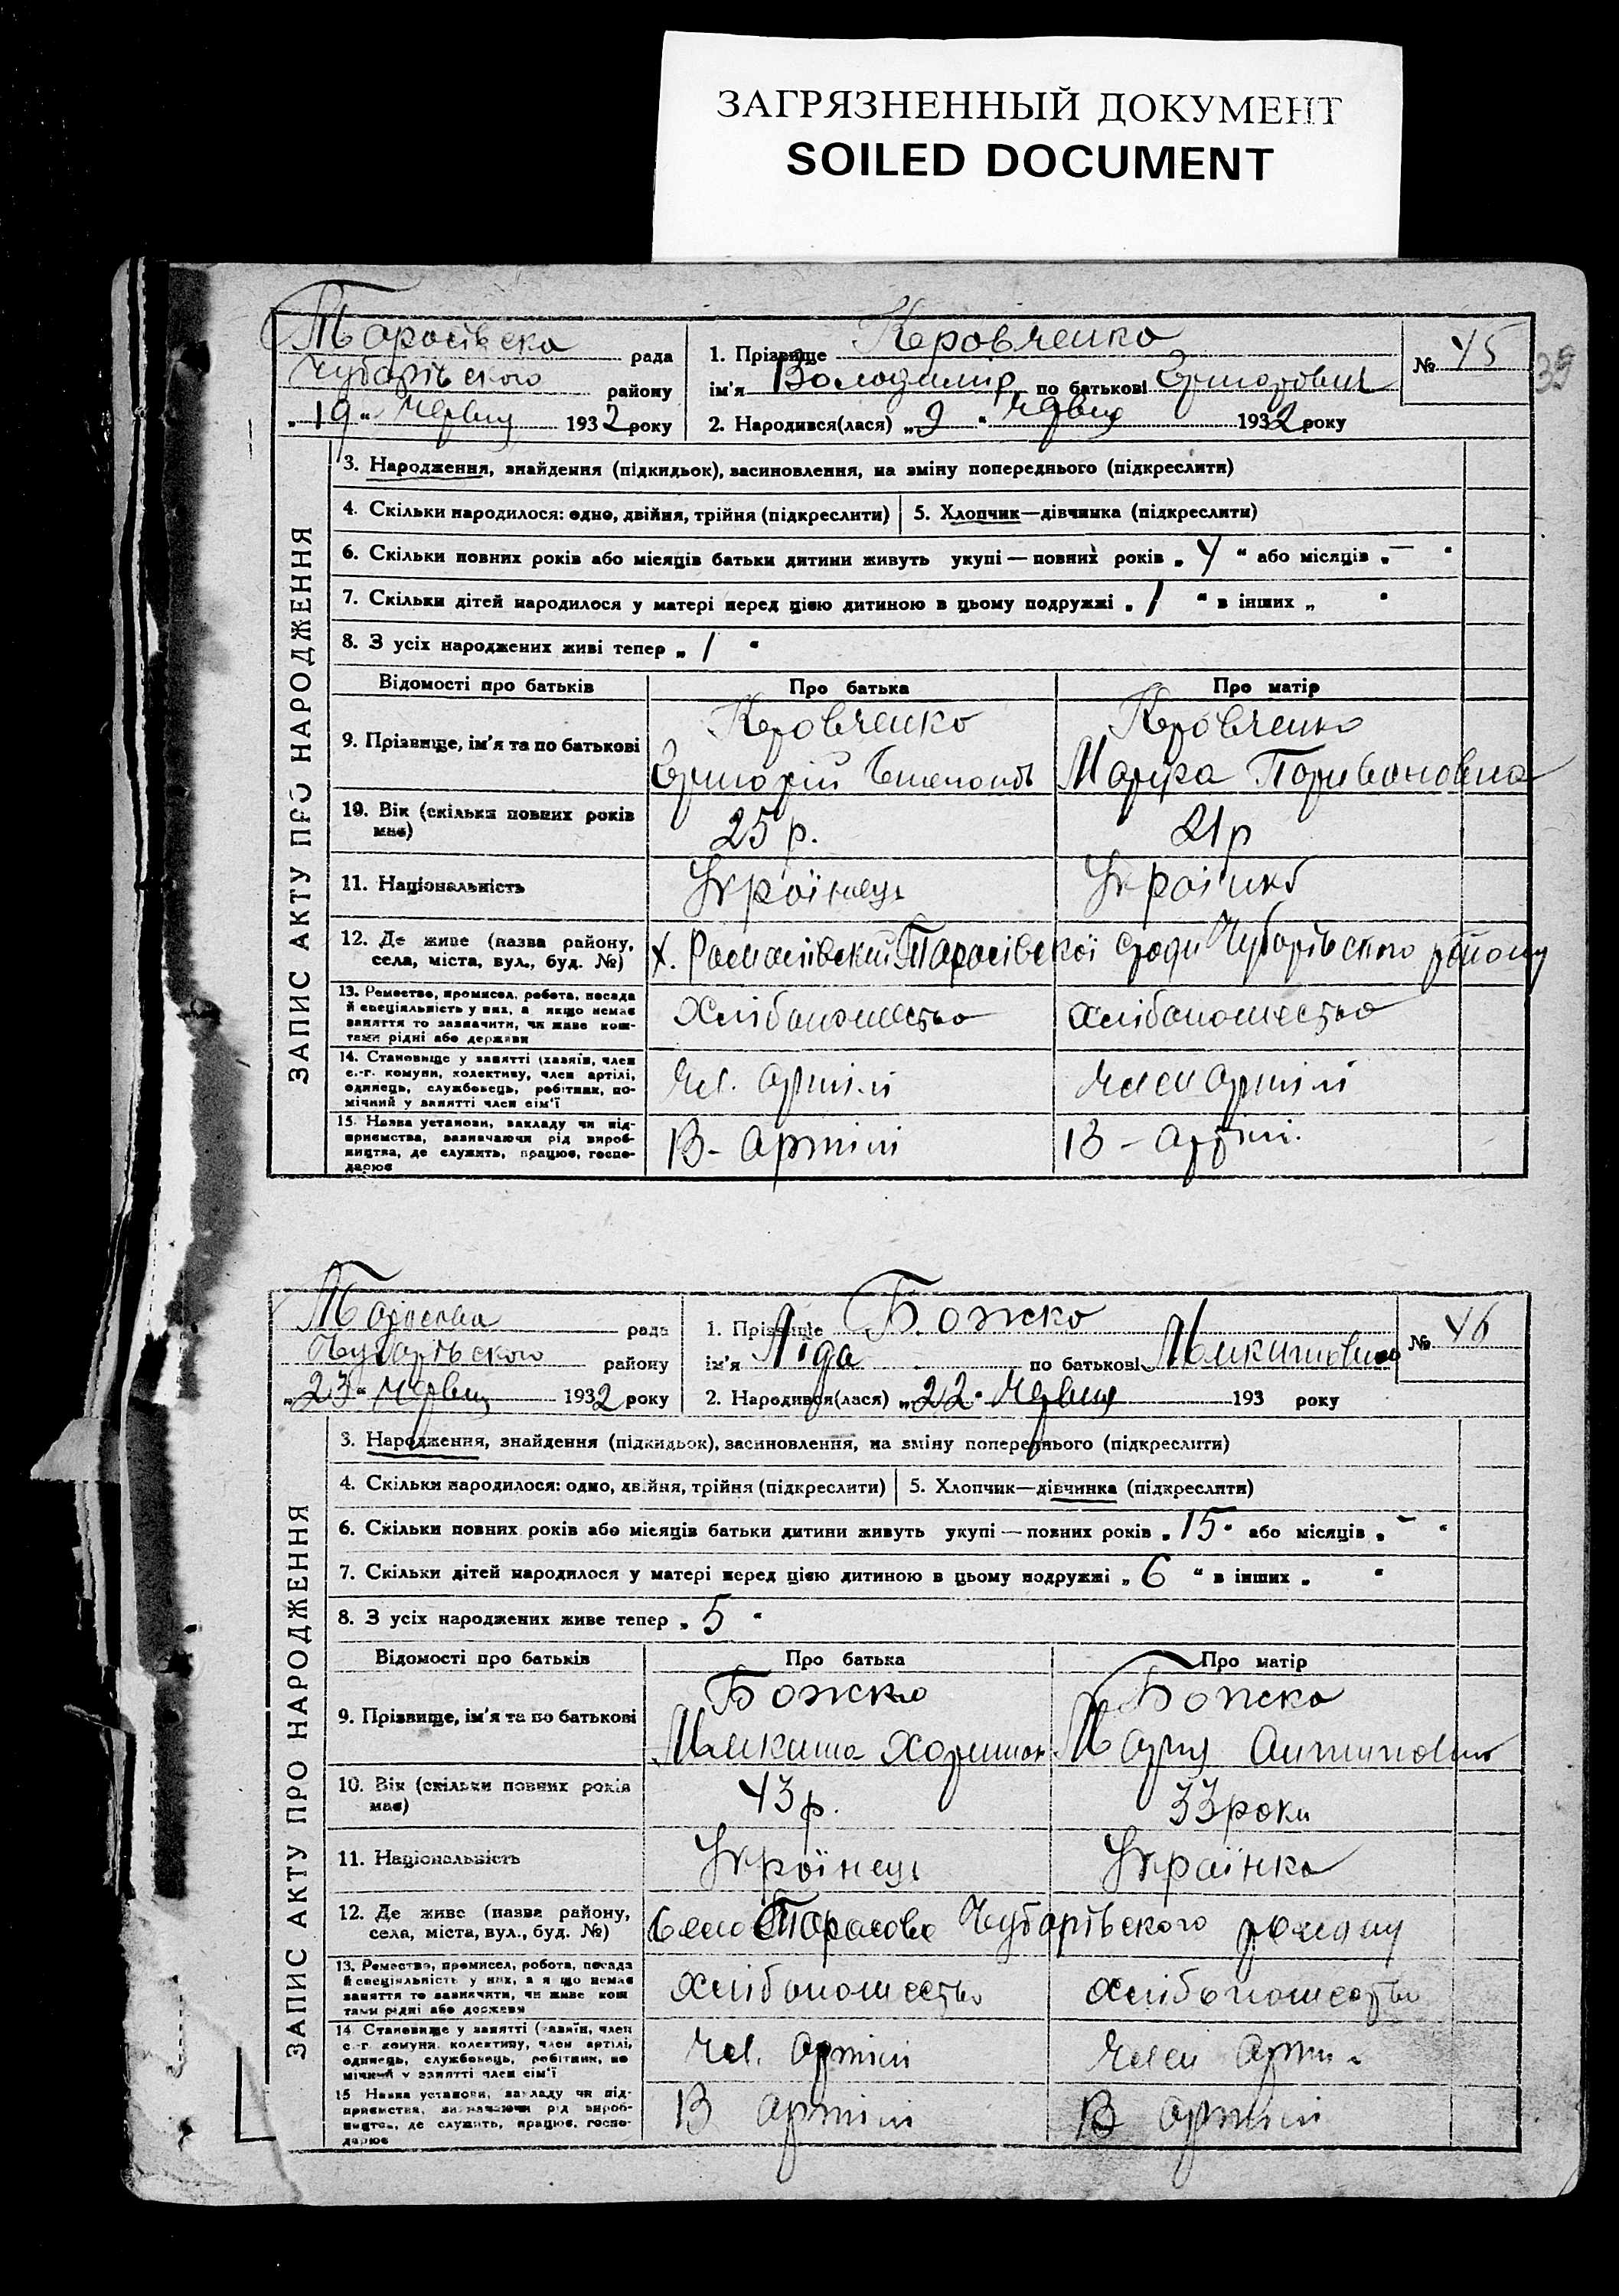 ЗАГРЯЗНЕННЫЙ ДОКУМЕНТ
SOILED DOCUMENT
39
Тарасівска рада
Чубарівского району
„19“ червня 1932 року
1. Прізвище Кровченко
ім'я Володимир по батькові Григорович
№ 45
2. Народився(лася) „9“ червня 1932 року
ЗАПИС АКТУ ПРО НАРОДЖЕННЯ
3. Народження, знайдення (підкидьок), засиновлення, на зміну попереднього (підкреслити)
4. Скільки народилося: одно, двійня, трійня (підкреслити) 5. Хлопчик—дівчинка (підкреслити)
6. Скільки повних років або місяців батьки дитини живуть укупі — повних років „4“ або місяців „—“
7. Скільки дітей народилося у матері перед цією дитиною в цьому подружжі „1“ в інших „ “
8. З усіх народжених живі тепер „1“
Відомості про батьків Про батька Про матір
9. Прізвище, ім'я та по батькові
Кровченко Кровченко
Григорій Марфа
10. Вік (скільки повних років має) 25 р. 21 р
11. Національність Українець
12. Де живе (назва району, села, міста, вул., буд. №) х. Тарасівскої Чубарівского району
13. Ремество, промисел, робота, посада й спеціяльність у них, а якщо немає заняття то зазначити, чи живе коштами рідні або держави
14. Становище у занятті (хазяїн, член с.-г. комуни, колективу, член артілі, одинець, службовець, робітник, помічний у занятті член сім'ї Чл. артілі Член артілі
15. Назва установи, закладу чи підприємства, зазначаючи рід виробництва, де служить, працює, господарює В- артілі В - артілі
Чубарівского району
„23“ червня 1932 року
рада
1. Прізвище Божко
ім'я Ліда по батькові Микитовна
№ 46
2. Народився(лася) „22“ червня 193 року
ЗАПИС АКТУ ПРО НАРОДЖЕННЯ
3. Народження, знайдення (підкидьок), засиновлення, на зміну попереднього (підкреслити)
4. Скільки народилося: одно, двійня, трійня (підкреслити) 5. Хлопчик—дівчинка (підкреслити)
6. Скільки повних років або місяців батьки дитини живуть укупі — повних років „15“ або місяців „—“
7. Скільки дітей народилося у матері перед цією дитиною в цьому подружжі „6“ в інших „ “
8. З усіх народжених живе тепер „5“
Відомості про батьків Про батька Про матір
9. Прізвище, ім'я та по батькові
Божко Божко
Микита Мария
10. Вік (скільки повних років має) 43 р. 33 роки
11. Національність Українець Українка
12. Де живе (назва району, села, міста, вул., буд. №) Село Чубарівского району
13. Ремество, промисел, робота, посада й спеціяльність у них, а якщо немає заняття то зазначити, чи живе коштами рідні або держави
14. Становище у занятті (хазяїн, член с.-г. комуни, колективу, член артілі, одинець, службовець, робітник, помічний у занятті член сім'ї Чл. артілі Член
15. Назва установи, закладу чи підприємства, зазначаючи рід виробництва, де служить, працює, господарює В артілі В артілі